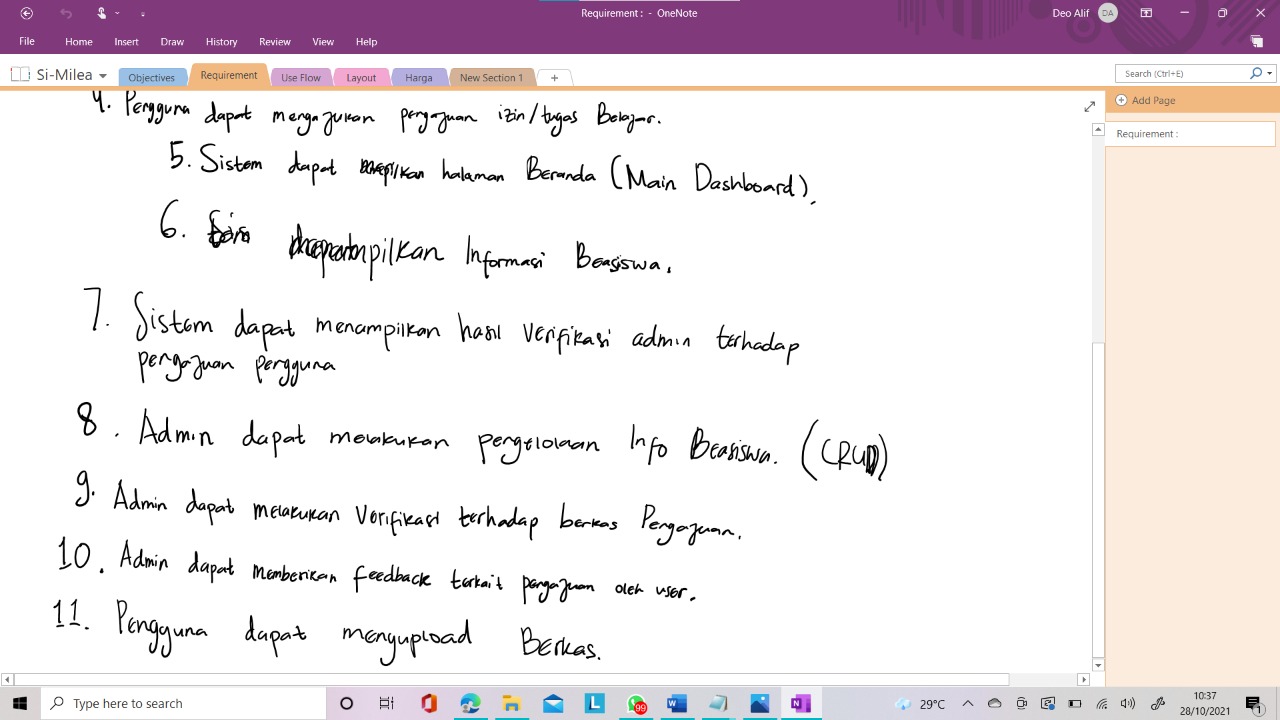 Requirement : - OneNote
Deo Alif DA
File Home Insert Draw History Review View Help
Si-Milea Objectives Requirement Use Flow Layout Harga New Section 1 +
Search (Ctrl+E)
Add Page
Requirement :
4. Pengguna dapat mengajukan pengajuan izin/tugas Belajar.
5. Sistem dapat halaman Beranda (Main Dashboard).
6. Informasi Beasiswa.
7. Sistem dapat menampilkan hasil verifikasi admin terhadap
pengajuan pengguna
8. Admin dapat melakukan pengelolaan Info Beasiswa. (CRUD)
9. Admin dapat melakukan Verifikasi terhadap berkas Pengajuan.
10. Admin dapat memberikan feedback terkait pengajuan oleh user.
11. Pengguna dapat mengupload Berkas.
Type here to search
99
29°C
10:37
28/10/2021
1